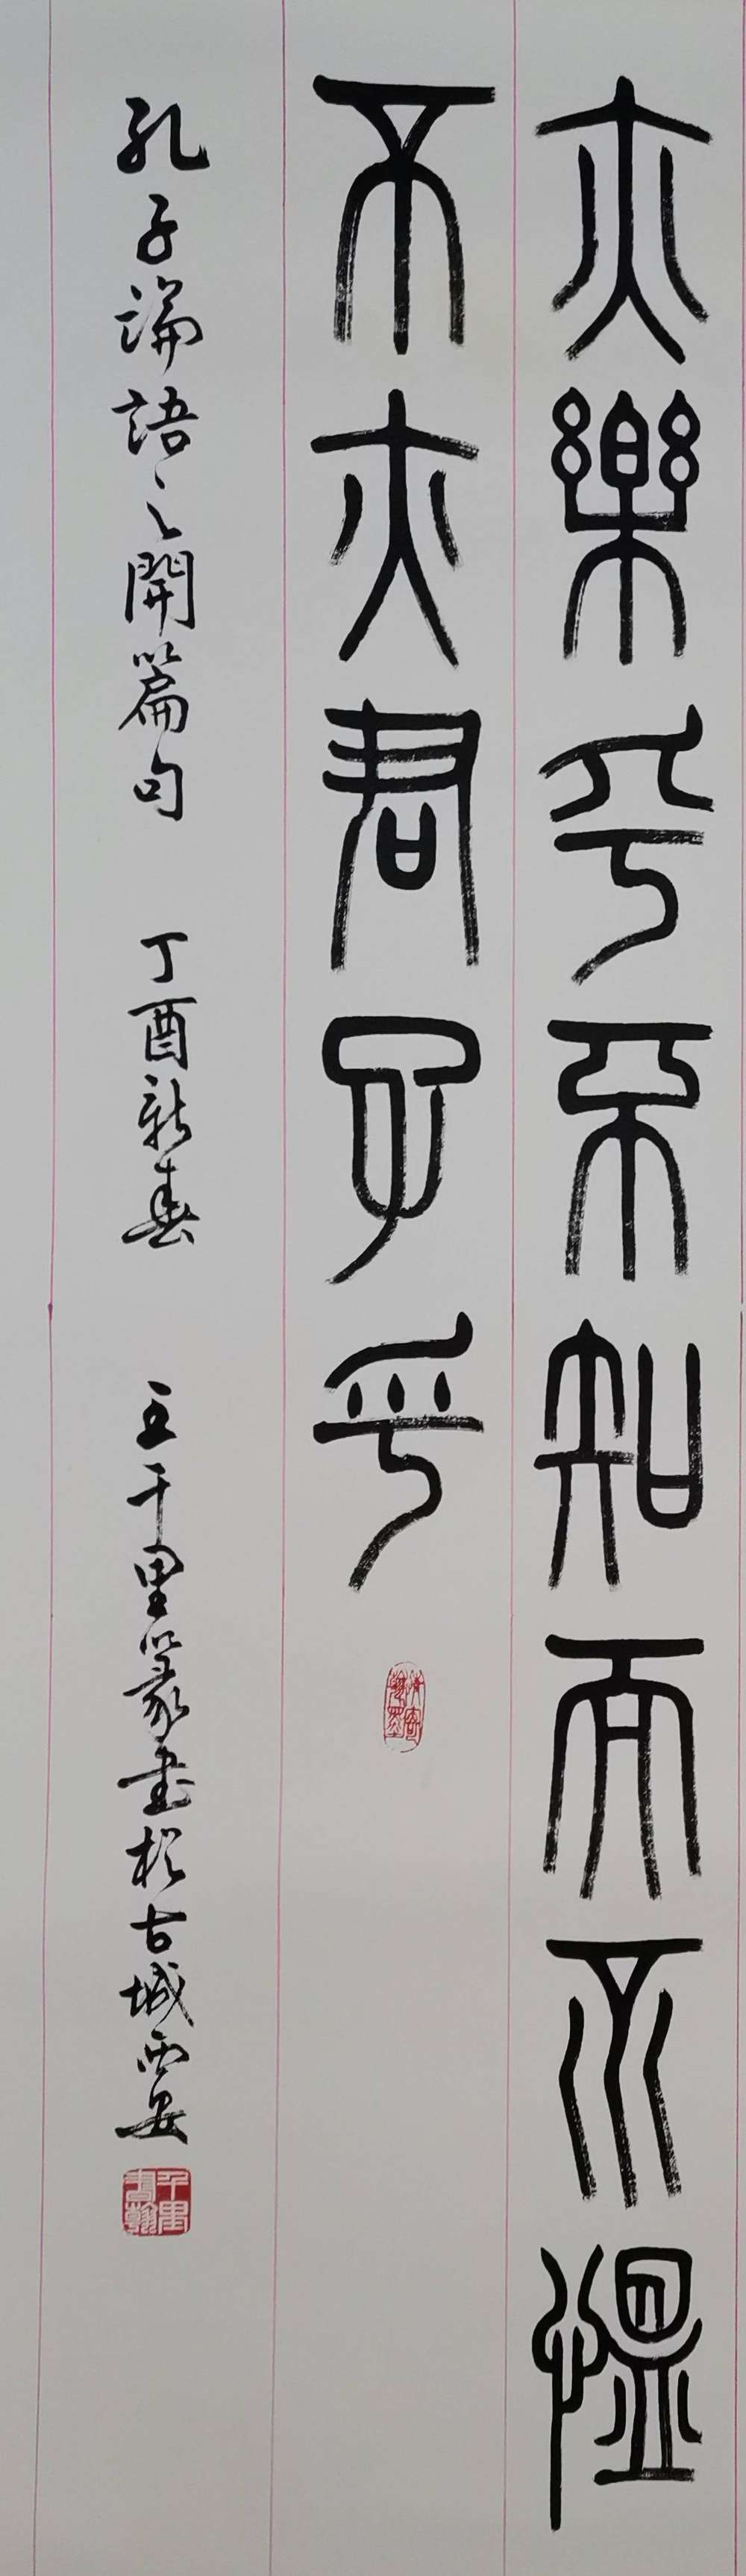 亦樂乎不知而不愠
不亦君子乎
孔子論語之開篇句 丁酉新春 王千里篆書於古城西安
千里書翰